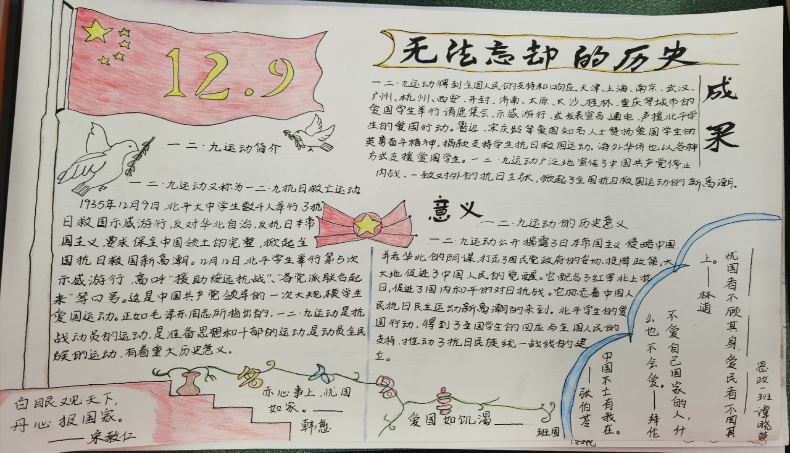 12.9
无法忘却的历史
一二·九运动简介
一二·九运动又称为一二·九抗日救亡运动
1935年12月9日,北平大中学生数千人举行了抗
日救国示威游行,反对华北自治,反抗日本帝
国主义,要求保全中国领土的完整,掀起全
国抗日救国新高潮。12月12日,北平学生举行第5次
示威游行,高呼“援助绥远抗战”、“各党派联合起
来”等口号。这是中国共产党领导的一次大规模学生
爱国运动。正如毛泽东同志所指出的,一二·九运动是抗
战动员的运动,是准备思想和干部的运动,是动员全民
族的运动,有着重大历史意义。
成果
一二·九运动得到全国人民的支持和响应,天津、上海、南京、武汉、
广州、杭州、西安、开封、济南、太原、长沙、桂林、重庆等城市的
爱国学生举行请愿集会、示威游行,或发表宣言通电,声援北平学
生的爱国行动。
宋庆龄等爱国知名人士赞扬爱国学生的
英勇奋斗精神,捐款支持学生抗日救国运动,海外华侨也以各种
方式支援爱国学生。一二·九运动广泛地宣传了中国共产党停止
内战、一致对外的抗日主张,掀起了全国抗日救国运动的新高潮。
意义
一二·九运动的历史意义
一二·九运动公开揭露了日本帝国主义侵略中国
并吞华北的阴谋,打击了国民党政府的妥协投降政策,大
大地促进了中国人民的觉醒。它配合了红军北上抗
日,促进了国内和平的对日抗战。它标志着中国人
民抗日民主运动新高潮的来到。北平学生的爱
国行动,得到了全国学生的回应与全国人民的
支持,推动了抗日民族统一战线的建
立。
白眼观天下,
丹心报国家。
——宋教仁
赤心事上,忧国
如家。——
韩愈
爱国如饥渴——
班固
忧国者不顾其身,爱民者不罔其
上。——林逋
不爱自己国家的人,什
么也不会爱。——拜伦
中国不亡有我在。
——张伯苓
思政一班